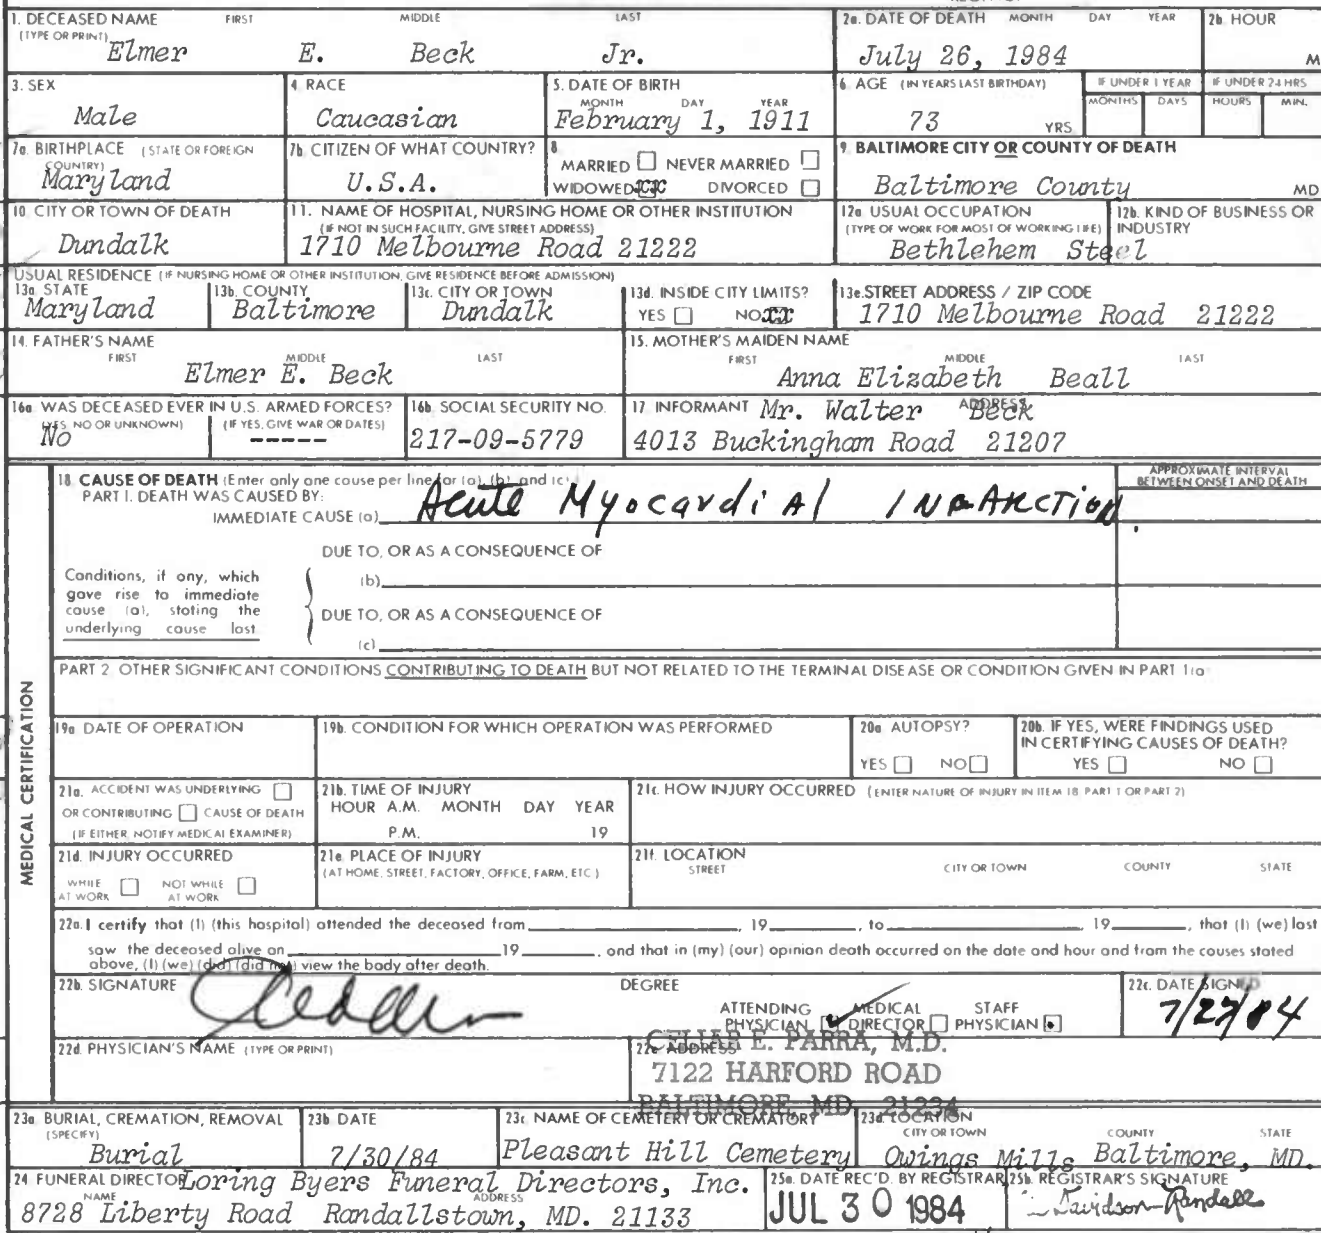 1. DECEASED NAME FIRST MIDDLE LAST
(TYPE OR PRINT)
Elmer E. Beck Jr.
2a. DATE OF DEATH MONTH DAY YEAR
July 26, 1984
2b. HOUR
M
3. SEX
Male
4. RACE
Caucasian
5. DATE OF BIRTH
MONTH DAY YEAR
February 1, 1911
6. AGE (IN YEARS LAST BIRTHDAY)
73 YRS.
IF UNDER 1 YEAR
MONTHS DAYS
IF UNDER 24 HRS
HOURS MIN.
7a. BIRTHPLACE (STATE OR FOREIGN
COUNTRY)
Maryland
7b. CITIZEN OF WHAT COUNTRY?
U.S.A.
8
MARRIED NEVER MARRIED
WIDOWED xx DIVORCED
9. BALTIMORE CITY OR COUNTY OF DEATH
Baltimore County MD
10. CITY OR TOWN OF DEATH
Dundalk
11. NAME OF HOSPITAL, NURSING HOME OR OTHER INSTITUTION
(IF NOT IN SUCH FACILITY, GIVE STREET ADDRESS)
1710 Melbourne Road 21222
12a. USUAL OCCUPATION
(TYPE OF WORK FOR MOST OF WORKING LIFE)
12b. KIND OF BUSINESS OR
INDUSTRY
Bethlehem Steel
USUAL RESIDENCE (IF NURSING HOME OR OTHER INSTITUTION, GIVE RESIDENCE BEFORE ADMISSION)
13a. STATE
Maryland
13b. COUNTY
Baltimore
13c. CITY OR TOWN
Dundalk
13d. INSIDE CITY LIMITS?
YES NO xx
13e. STREET ADDRESS / ZIP CODE
1710 Melbourne Road 21222
14. FATHER'S NAME
FIRST MIDDLE LAST
Elmer E. Beck
15. MOTHER'S MAIDEN NAME
FIRST MIDDLE LAST
Anna Elizabeth Beall
16a WAS DECEASED EVER IN U.S. ARMED FORCES?
(YES, NO OR UNKNOWN) (IF YES, GIVE WAR OR DATES)
No -----
16b. SOCIAL SECURITY NO.
217-09-5779
17 INFORMANT ADDRESS
Mr. Walter Beck
4013 Buckingham Road 21207
MEDICAL CERTIFICATION
18. CAUSE OF DEATH (Enter only one cause per line for (a), (b), and (c).)
PART I. DEATH WAS CAUSED BY:
IMMEDIATE CAUSE (a) Acute Myocardial INFARCTION
APPROXIMATE INTERVAL
BETWEEN ONSET AND DEATH
DUE TO, OR AS A CONSEQUENCE OF
(b)
Conditions, if any, which
gave rise to immediate
cause (a), stating the
underlying cause last
DUE TO, OR AS A CONSEQUENCE OF
(c)
PART 2 OTHER SIGNIFICANT CONDITIONS CONTRIBUTING TO DEATH BUT NOT RELATED TO THE TERMINAL DISEASE OR CONDITION GIVEN IN PART 1(a)
19a DATE OF OPERATION
19b. CONDITION FOR WHICH OPERATION WAS PERFORMED
20a AUTOPSY?
YES NO
20b. IF YES, WERE FINDINGS USED
IN CERTIFYING CAUSES OF DEATH?
YES NO
21a. ACCIDENT WAS UNDERLYING
OR CONTRIBUTING CAUSE OF DEATH
(IF EITHER, NOTIFY MEDICAL EXAMINER)
21b. TIME OF INJURY
HOUR A.M. MONTH DAY YEAR
P.M. 19
21c. HOW INJURY OCCURRED (ENTER NATURE OF INJURY IN ITEM 18 PART 1 OR PART 2)
21d. INJURY OCCURRED
WHILE AT WORK NOT WHILE AT WORK
21e. PLACE OF INJURY
(AT HOME, STREET, FACTORY, OFFICE, FARM, ETC.)
21f. LOCATION
STREET CITY OR TOWN COUNTY STATE
22a. I certify that (I) (this hospital) attended the deceased from 19 , to 19 , that (I) (we) last
saw the deceased alive on 19 , and that in (my) (our) opinion death occurred on the date and hour and from the causes stated
above, (I) (we) (did) (did not) view the body after death.
22b. SIGNATURE
DEGREE
ATTENDING PHYSICIAN MEDICAL DIRECTOR STAFF PHYSICIAN
22c. DATE SIGNED
7/27/84
22d. PHYSICIAN'S NAME (TYPE OR PRINT)
22e ADDRESS
E. PARRA, M.D.
7122 HARFORD ROAD
BALTIMORE, MD. 21234
23a. BURIAL, CREMATION, REMOVAL
(SPECIFY)
Burial
23b DATE
7/30/84
23c NAME OF CEMETERY OR CREMATORY
Pleasant Hill Cemetery
23d. LOCATION
CITY OR TOWN COUNTY STATE
Owings Mills Baltimore, MD.
24 FUNERAL DIRECTOR
Loring Byers Funeral Directors, Inc.
NAME ADDRESS
8728 Liberty Road Randallstown, MD. 21133
25a. DATE REC'D. BY REGISTRAR
JUL 30 1984
25b. REGISTRAR'S SIGNATURE
Davidson-Randall